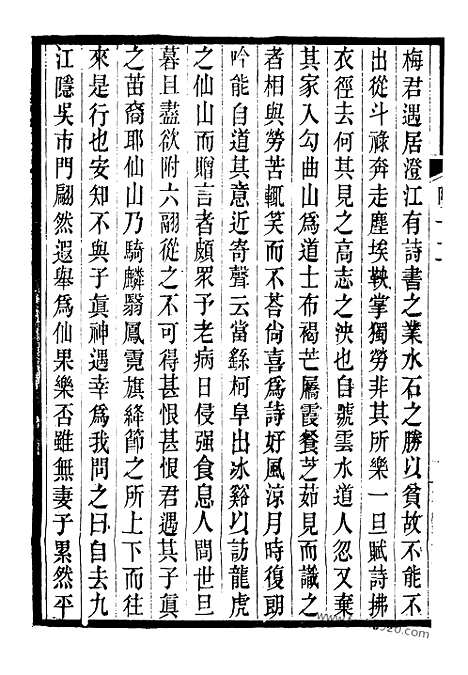 梅君遇居澄江有詩書之業水石之勝以貧故不能不
出從斗祿奔走塵埃鞅掌獨勞非其所樂一旦賦詩拂
衣徑去何其見之高志之泱也自號雲水道人忽又棄
其家入勾曲山為道士布褐芒屩霞餐芝茹見而譏之
者相與勞苦輒笑而不荅尙喜為詩好風涼月時復朗
吟能自道其意近寄聲云當繇柯阜出冰谿以訪龍虎
之仙山而贈言者頗眾予老病日侵强食息人間世旦
暮且盡欲附六翮從之不可得甚恨甚恨君遇其子眞
之苗裔耶仙山乃騎麟翳鳳霓旗絳節之所上下而往
來是行也安知不與子眞神遇幸為我問之曰自去九
江隱吳市門翩然遐舉為仙果樂否雖無妻子累然平